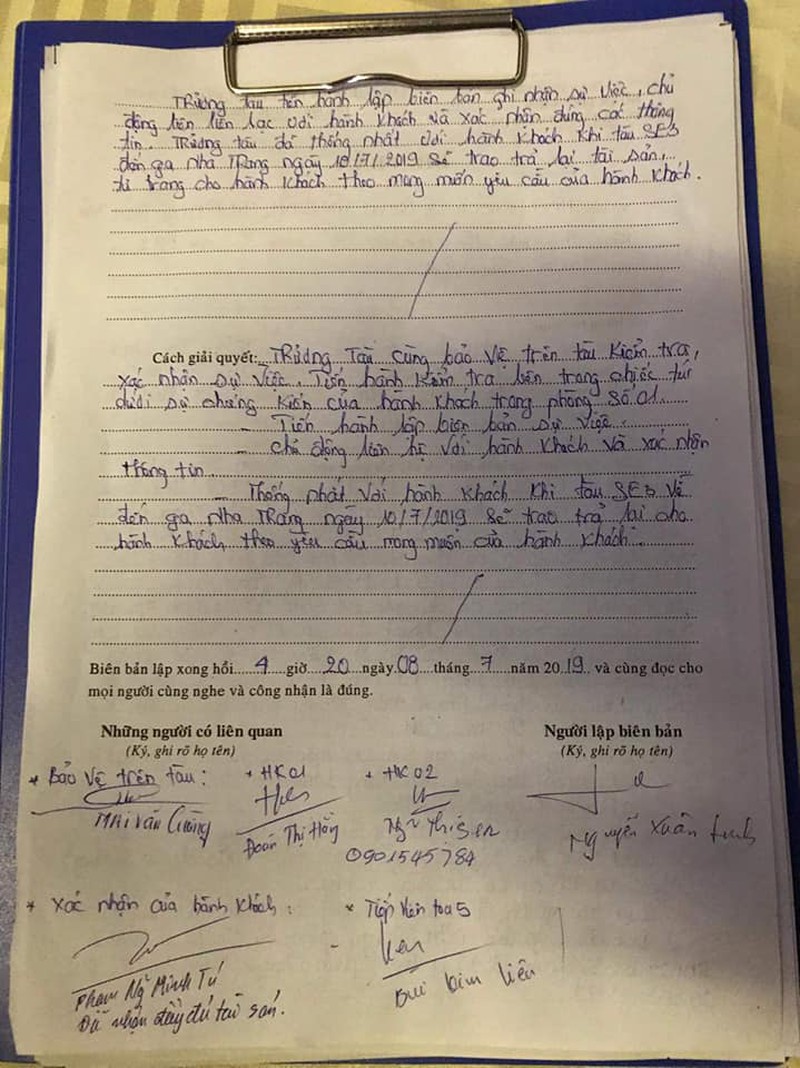 Trưởng tàu tiến hành lập biên bản ghi nhận sự việc, chủ
động liên liên lạc với hành khách và xác nhận đúng các thông
tin. Trưởng tàu đã thống nhất với hành khách khi tàu SE3
đến ga Nha Trang ngày 10/7/2019 sẽ trao trả lại tài sản,
tư trang cho hành khách theo mong muốn yêu cầu của hành khách.
Cách giải quyết: Trưởng Tàu cùng bảo vệ trên tàu kiểm tra,
xác nhận sự việc. Tiến hành kiểm tra bên trong chiếc túi
dưới sự chứng kiến của hành khách trong phòng số 01.
- Tiến hành lập biên bản sự việc.
- Chủ động liên hệ với hành khách và xác nhận
thông tin
- Thống nhất với hành khách khi tàu SE3 về
đến ga Nha Trang ngày 10/7/2019 sẽ trao trả lại cho
hành khách theo yêu cầu mong muốn của hành khách.
Biên bản lập xong hồi 4 giờ 20 ngày 08 tháng 7 năm 2019 và cùng đọc cho
mọi người cùng nghe và công nhận là đúng.
Những người có liên quan Người lập biên bản
(Ký, ghi rõ họ tên) (Ký, ghi rõ họ tên)
* Bảo vệ trên tàu: * HK01 * HK02
Mai Văn Cường Đoàn Thị Hồng Nguyễn Xuân
0901545784
* Xác nhận của hành khách: * Tiếp viên toa 5
Phạm Ng Minh Tú Bùi Kim Liên
Đã nhận đầy đủ tài sản.